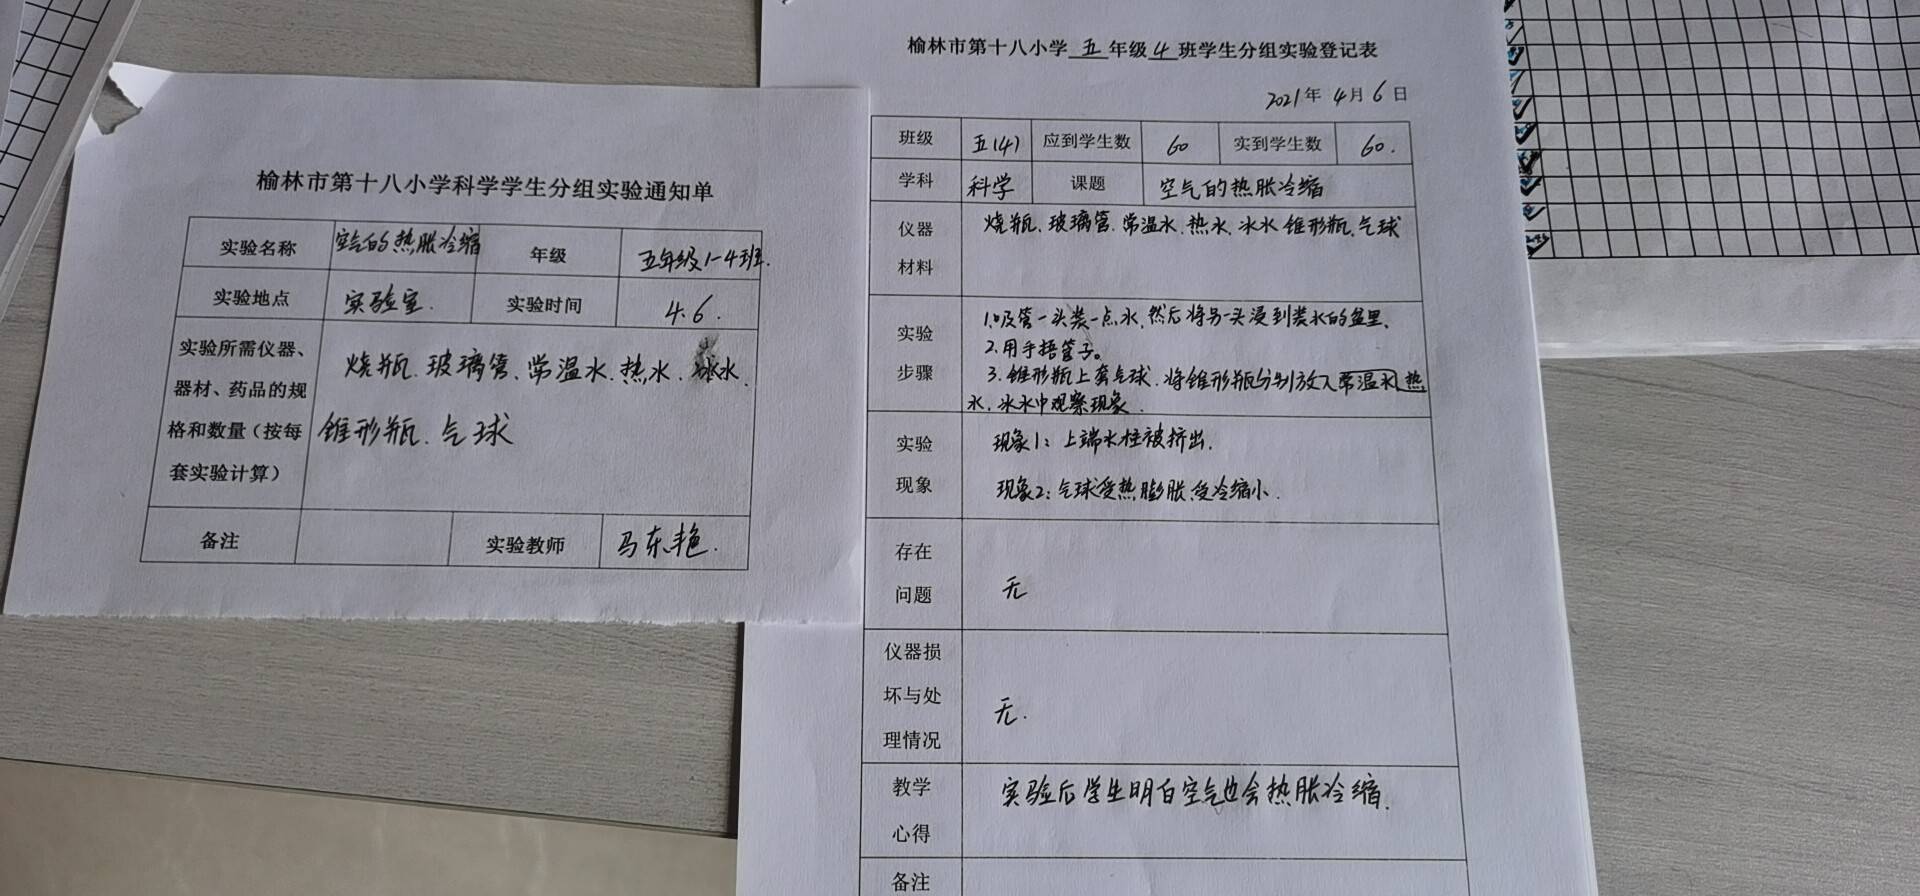 榆林市第十八小学科学学生分组实验通知单
实验名称 空气的热胀冷缩 年级 五年级1-4班.
实验地点 实验室. 实验时间 4.6.
实验所需仪器、
器材、药品的规
格和数量（按每
套实验计算）
烧瓶.玻璃管、常温水.热水.冰水.
锥形瓶.气球
备注 实验教师 马东艳.
榆林市第十八小学五年级4班学生分组实验登记表
2021年4月6日
班级 五(4) 应到学生数 60 实到学生数 60.
学科 科学 课题 空气的热胀冷缩
仪器
材料
烧瓶.玻璃管.常温水.热水.冰水 锥形瓶.气球
实验
步骤
1.吸管一头装一点水,然后将另一头浸到装水的盆里.
2.用手捂管子。
3.锥形瓶上套气球.将锥形瓶分别放入常温水.热
水.冰水中观察现象.
实验
现象
现象1:上端水柱被挤出.
现象2:气球受热膨胀.受冷缩小.
存在
问题
无
仪器损
坏与处
理情况
无.
教学
心得
实验后学生明白空气也会热胀冷缩.
备注